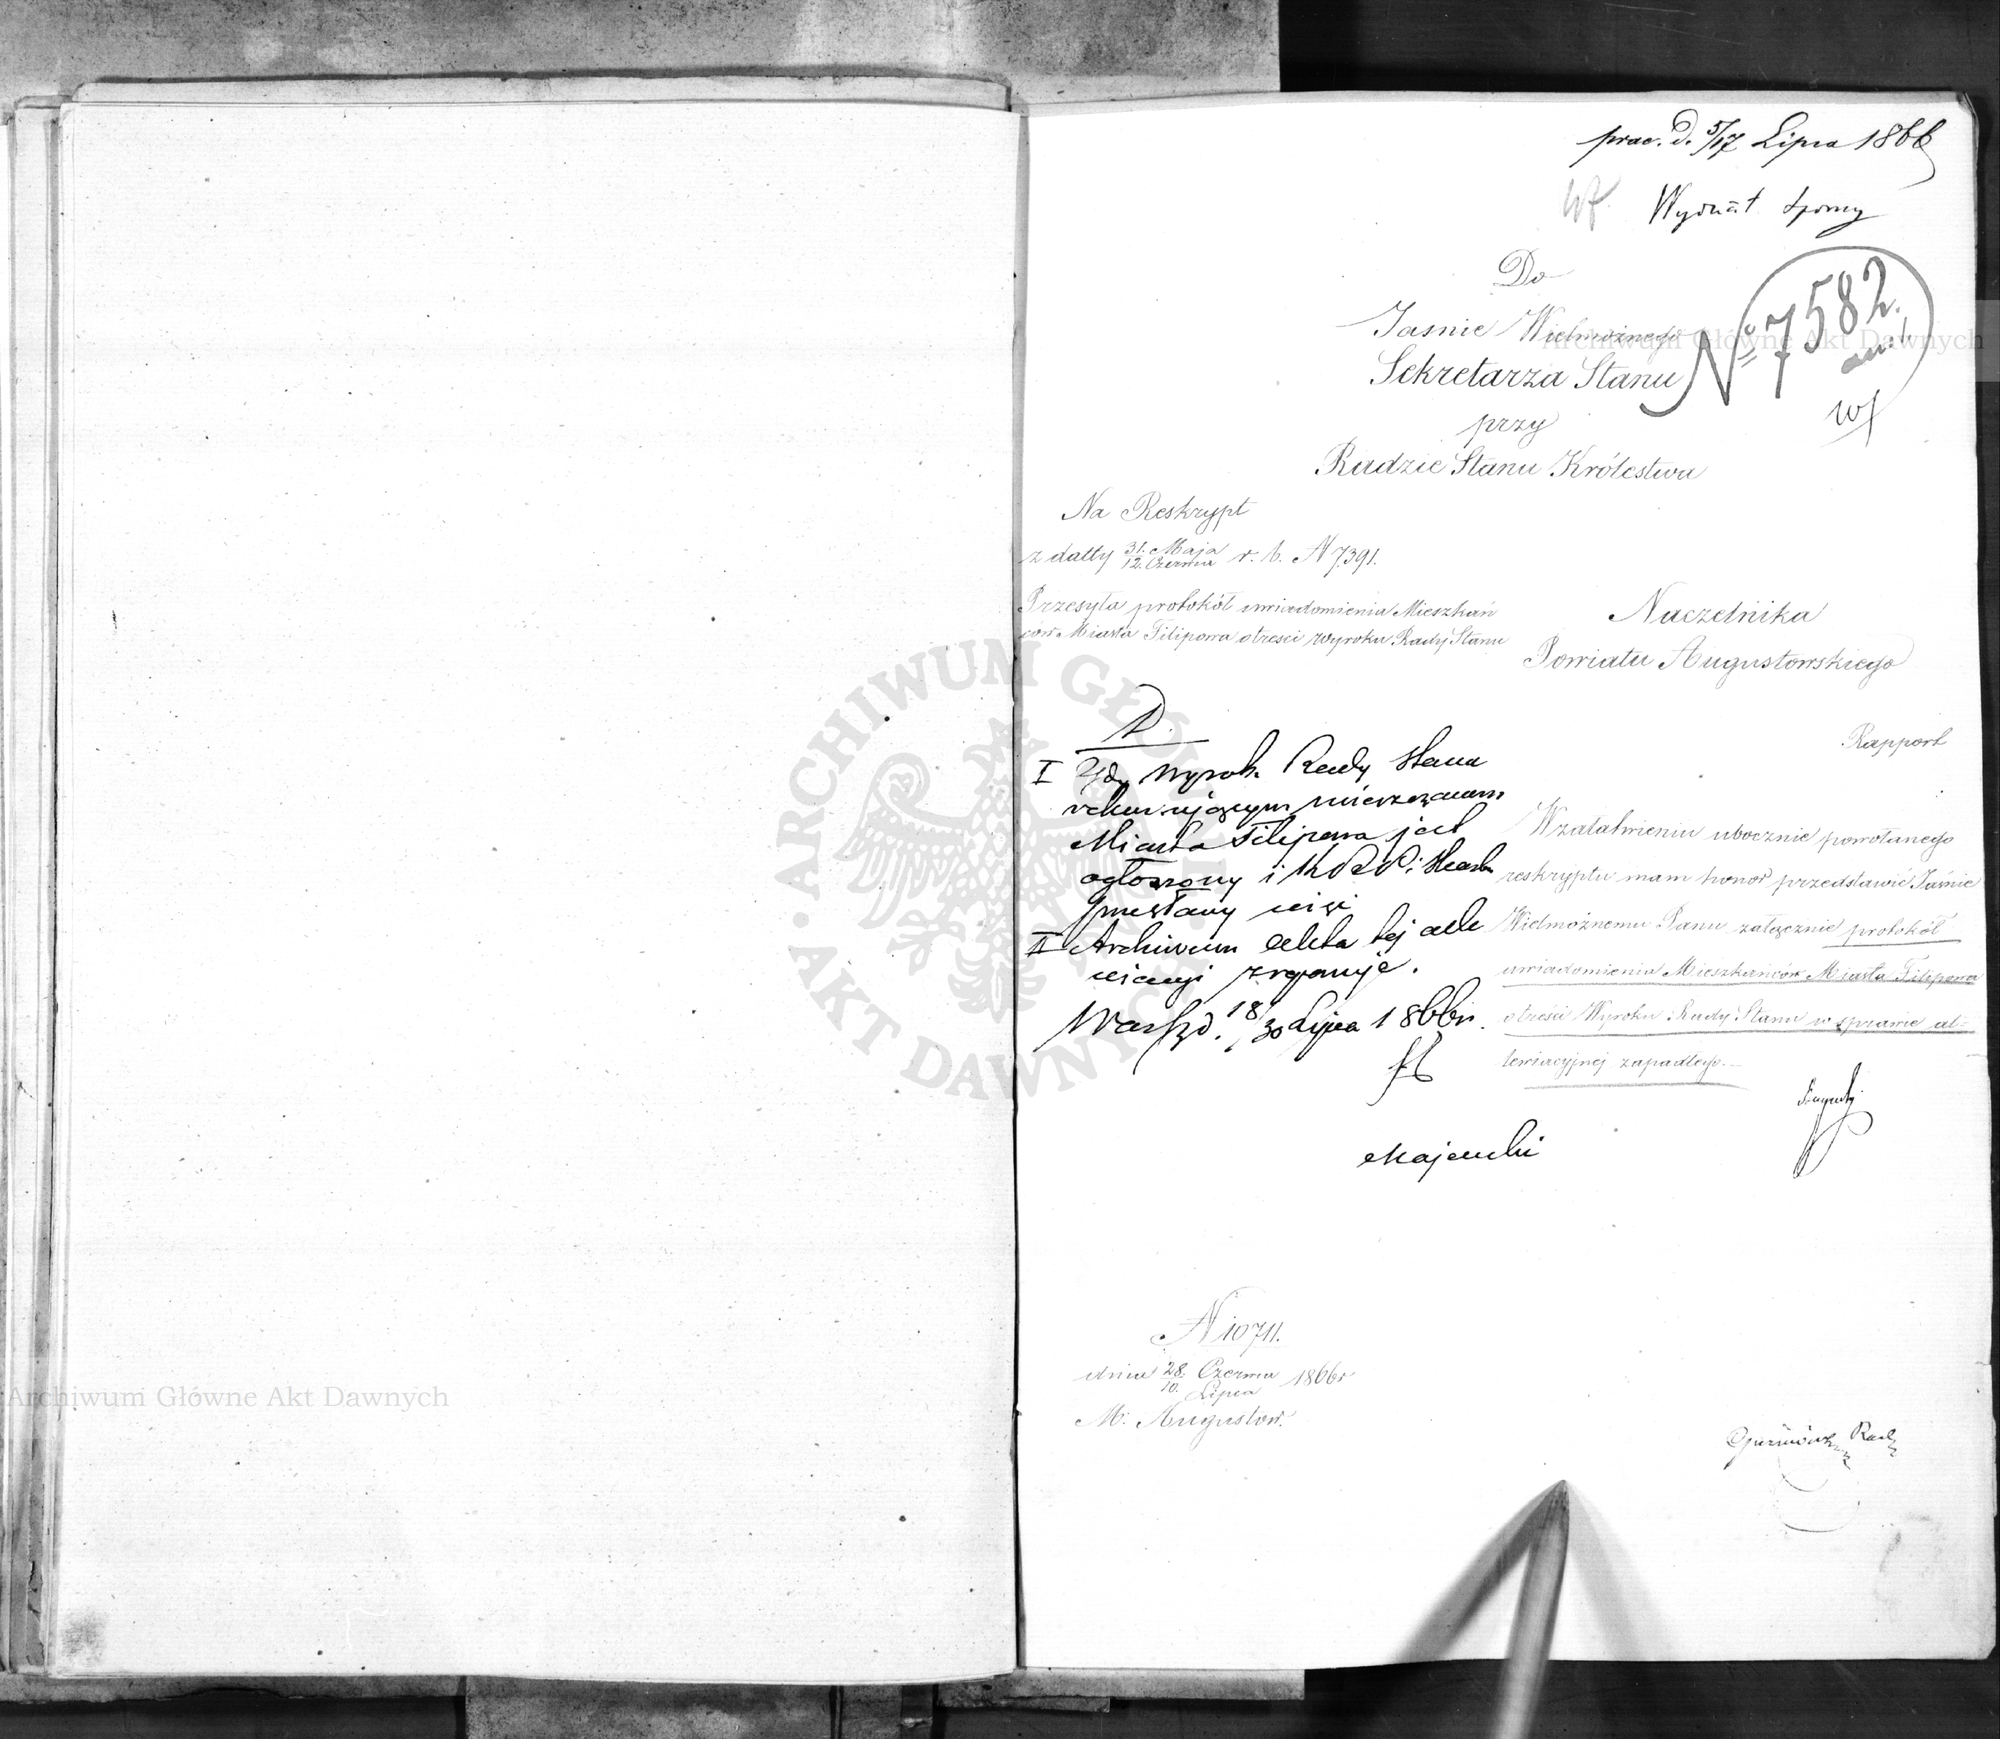 prac. d. 5/17 Lipca 1866
Wydział Sporny
Do
Jaśnie Wielmożnego
Sekretarza Stanu
przy
Radzie Stanu Królestwa
№ 7582.
Na Reskrypt
z datty 31. Maja / 12. Czerwca r. b. N 7391.
Przesyła protokół uwiadomienia Mieszkań
ców Miasta Filipowa o treści wyroku Rady Stanu
Naczelnika
Powiatu Augustowskiego
Rapport
W załatwieniu ubocznie powołanego
reskryptu mam honor przedstawić Jaśnie
Wielmożnemu Panu załącznie protokół
uwiadomienia Mieszkańców Miasta Filipowa
o treści Wyroku Rady Stanu w sprawie al-
lewiacyjnej zapadłego.
D.
I Gdy wyrok Rady Stanu
rekurującym mieszczanom
Miasta Filipowa jest
ogłoszony i
II Archiwum akta tej
Warsz. d. 18/30 Lipca 1866 r.
Majewski
N 10711.
dnia 28. Czerwca / 10. Lipca 1866 r
M. Augustów.
Archiwum Główne Akt Dawnych
Archiwum Główne Akt Dawnych
ARCHIWUM GŁÓWNE AKT DAWNYCH